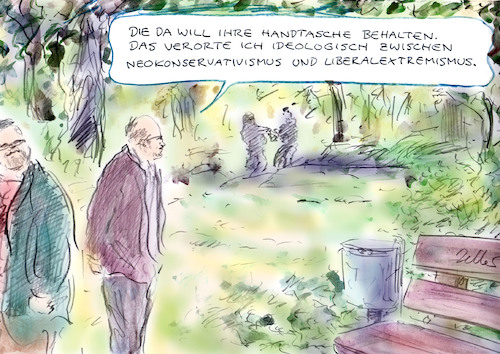 DIE DA WILL IHRE HANDTASCHE BEHALTEN.
DAS VERORTE ICH IDEOLOGISCH ZWISCHEN
NEOKONSERVATIVISMUS UND LIBERALEXTREMISMUS.